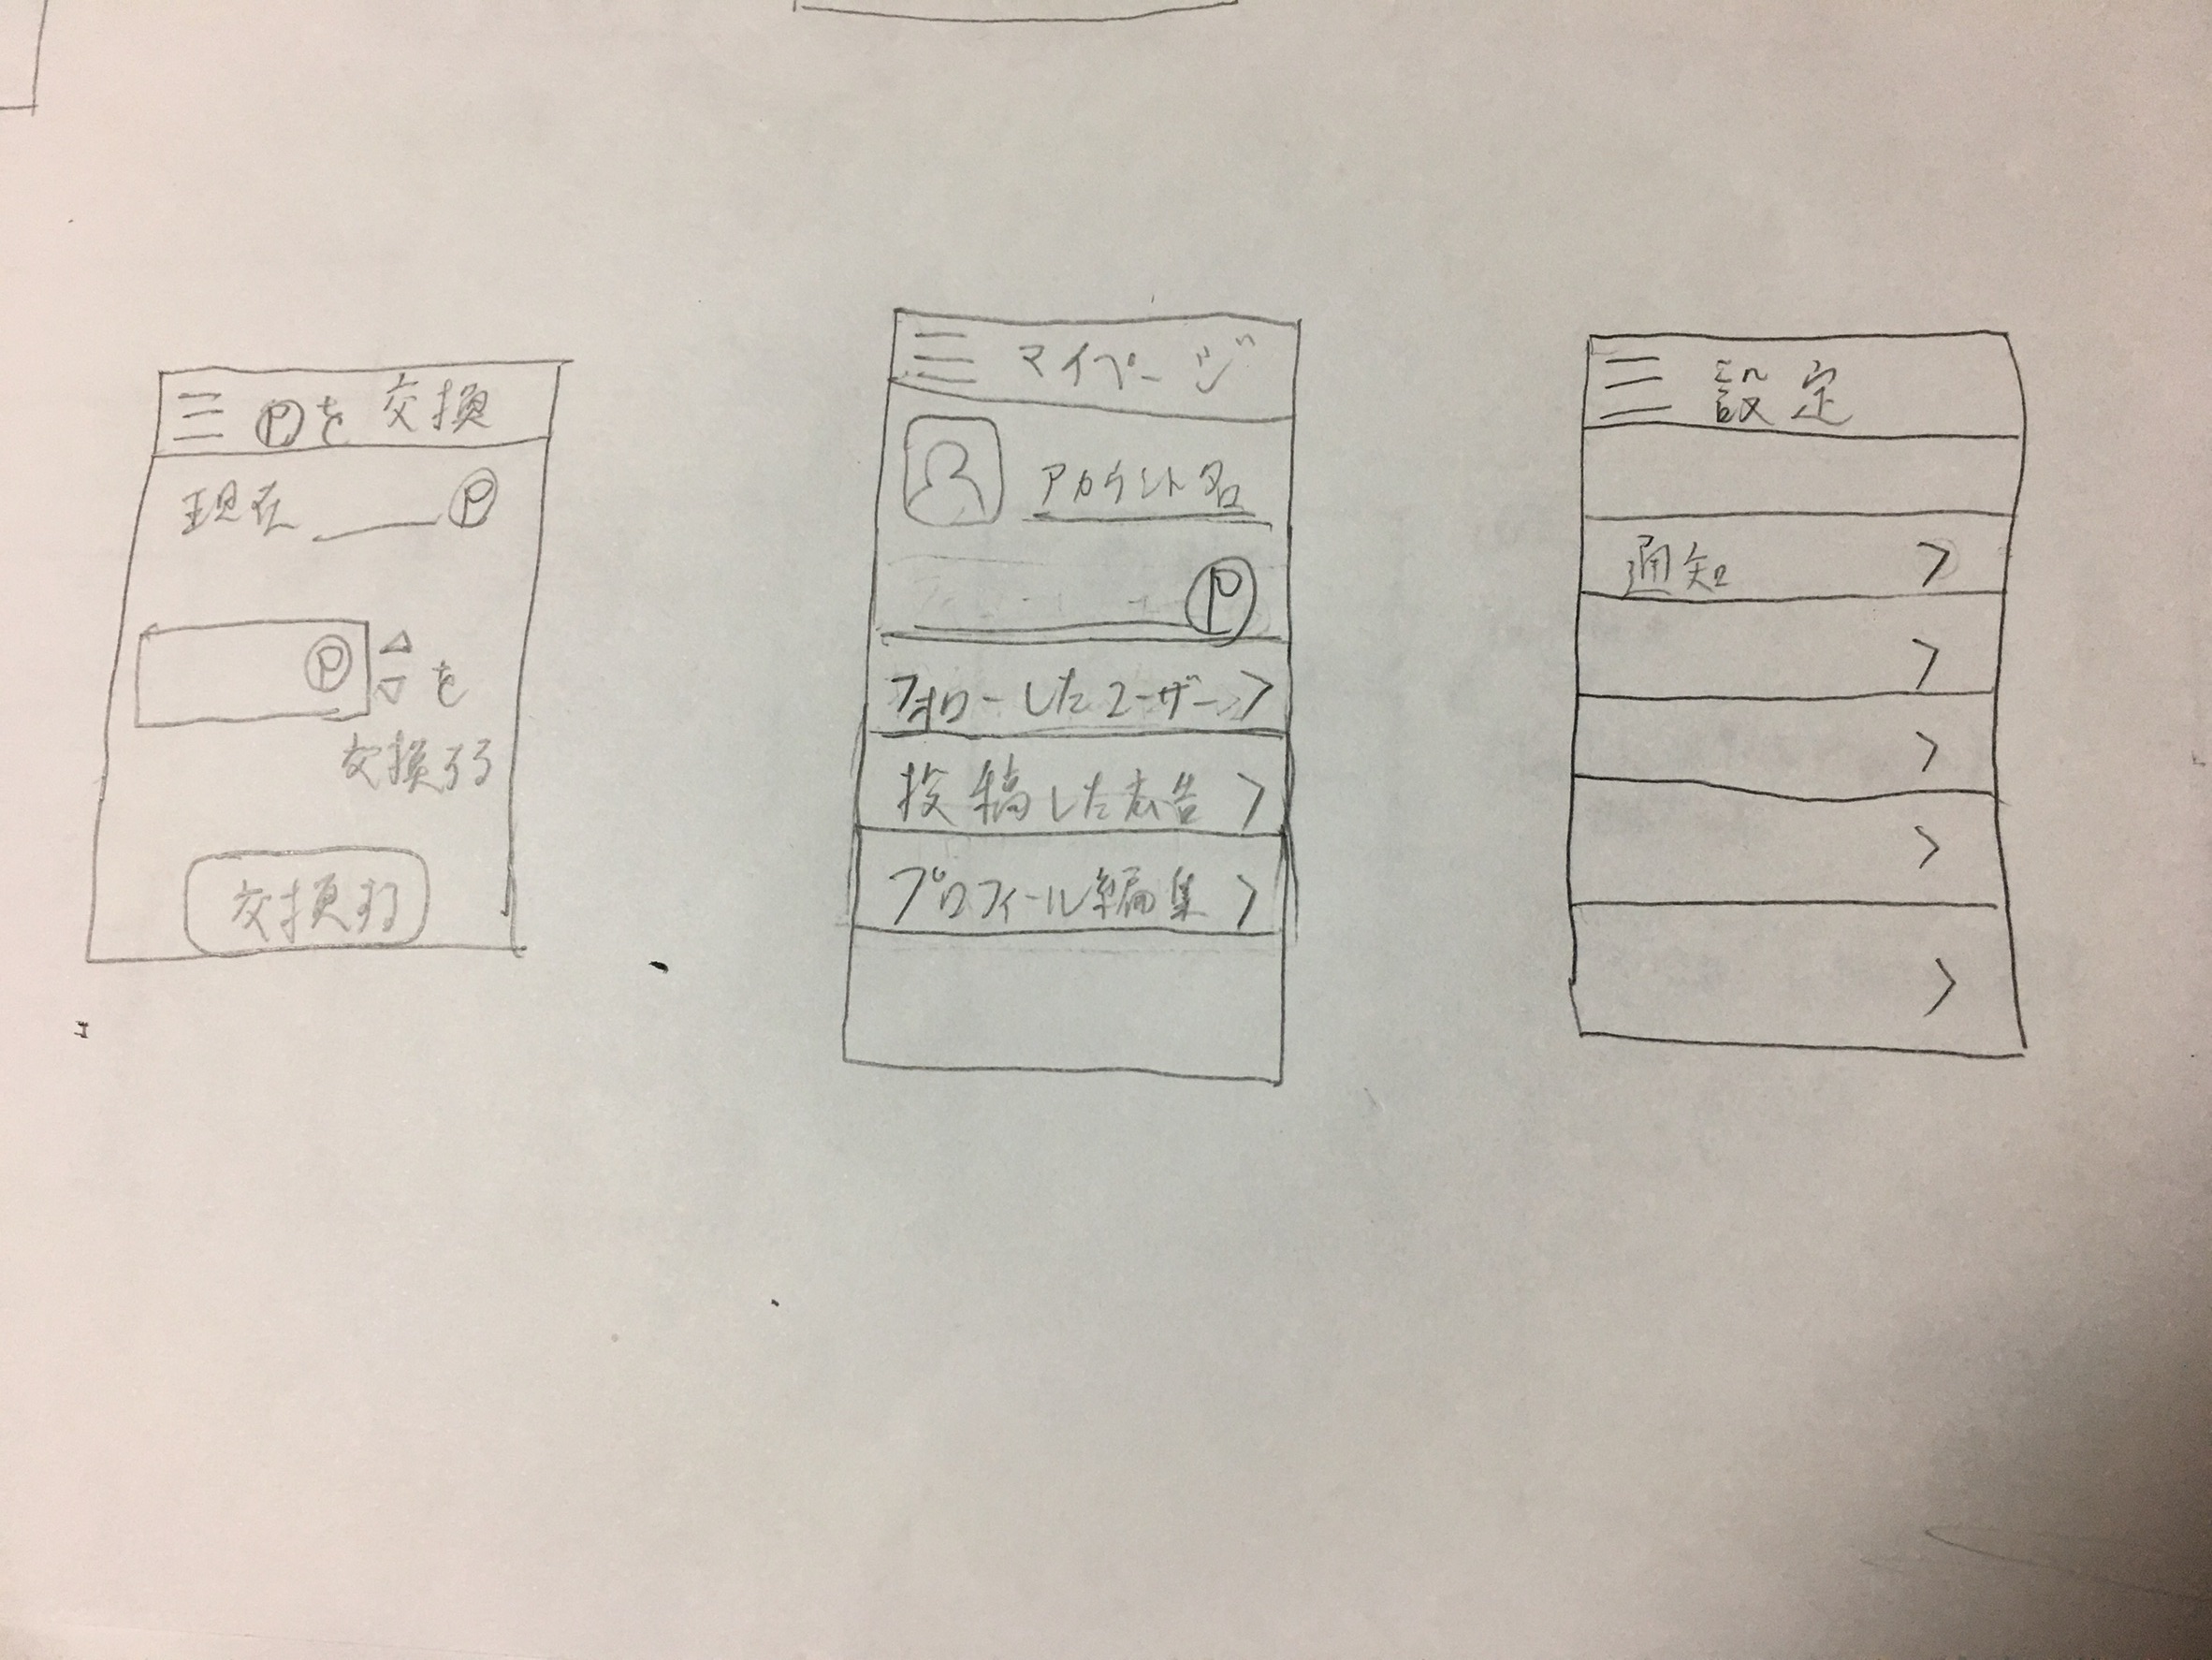 Ⓟを交換
現在 Ⓟ
Ⓟ を
交換する
交換する
マイページ
アカウント名
Ⓟ
フォローしたユーザー >
投稿した広告 >
プロフィール編集 >
設定
通知 >
>
>
>
>